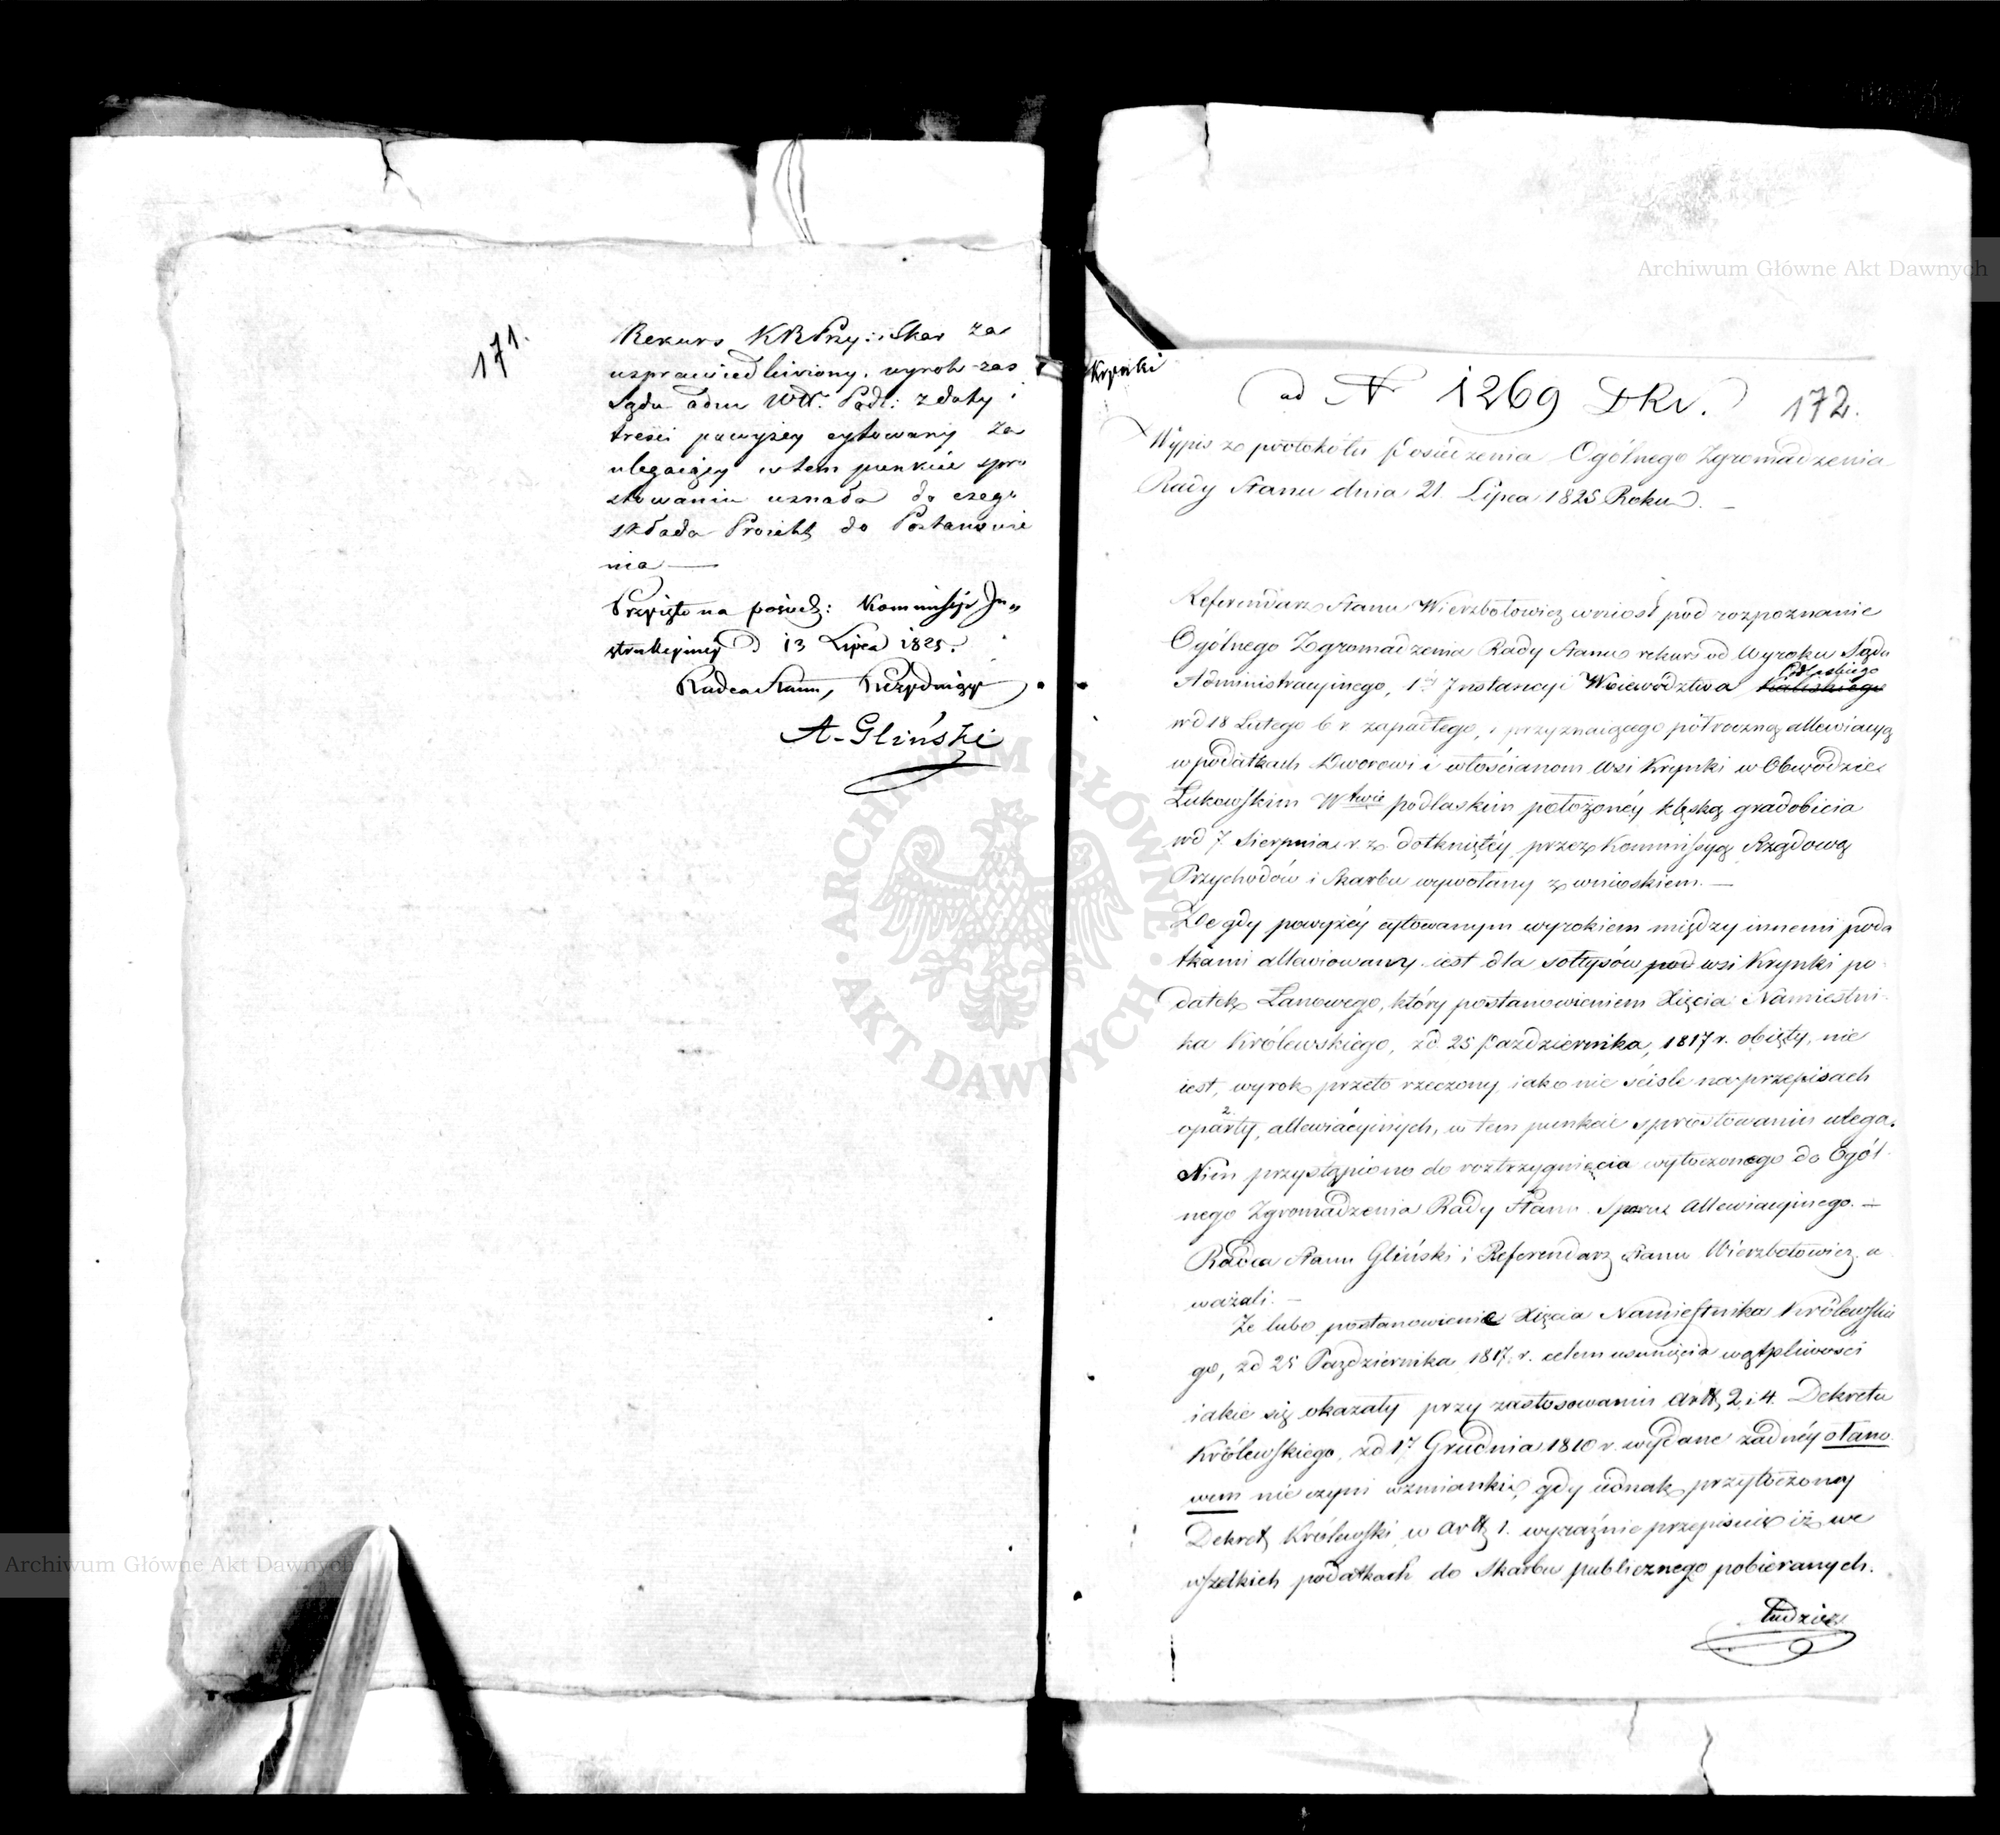 171.
Rekurs KRPrzy: i Skar za
usprawiedliwiony, wyrok zas
Sądu adm Wdt. Podl: z daty i
treści powyżey cytowany za
ulegaiący w tem punkcie spro
stowaniu uznała do czego
składa Proiekt do Postanowie
nia —
Przyięto na posiedz: Kommissyi In„
strukcyiney d 13 Lipca 1825.
Radca Stanu, Prezyduiący
A. Gliński
Krynki
ad N 1269 DKr.
172.
Wypis z protokółu Posiedzenia Ogólnego Zgromadzenia
Rady Stanu dnia 21. Lipca 1825 Roku. —
Referendarz Stanu Wierzbołowicz wniosł pod rozpoznanie
Ogólnego Zgromadzenia Rady Stanu rekurs od Wyroku Sądu
Podlaskiego
Administracyinego, 1éj Instancyi Woiewództwa Kaliskiego
w d 18 Lutego b r. zapadłego, i przyznaiącego półroczną allewiacyą
w podatkach Dworowi i włościanom wsi Krynki w Obwodzie
Łukowskim Wtwie podlaskim położonéy klęską gradobicia
w d 7 Sierpnia r. z. dotkniętéy przez Kommissyą Rządową
Przychodów i Skarbu wywołany z wnioskiem. —
Że gdy powyżéy cytowanym wyrokiem między innemi poda
tkami allewiowany iest dla sołtysów pod wsi Krynki po-
datek Łanowego, który postanowieniem Xięcia Namiestni-
ka Królewskiego, z d. 25 Października, 1817 r. obięty, nie
iest, wyrok przeto rzeczony iako nie ściśle na przepisach
2.
oparty, allewiacyinych, w tem punkcie sprostowaniu ulega.
Nim przystąpiono do roztrzygnięcia wytoczonego do Ogól-
nego Zgromadzenia Rady Stanu Sporu Allewiacyinego. —
Radca Stanu Gliński i Referendarz Stanu Wierzbołowicz u
ważali. —
Że lubo postanowienie Xięcia Namiestnika Królewskie
go, z d 25 Października 1817. r. celem usunięcia wątpliwości
iakie się okazały przy zastosowaniu Artt, 2, i 4. Dekretu
Królewskiego, z d 17 Grudnia 1810 r. wydane żadnéy o łano
wem nie czyni wzmianki, gdy iednak przytoczony
Dekret Królewski w Artt 1. wyraźnie przepisuie iż we
wszelkich podatkach do Skarbu publicznego pobieranych.
tudzież